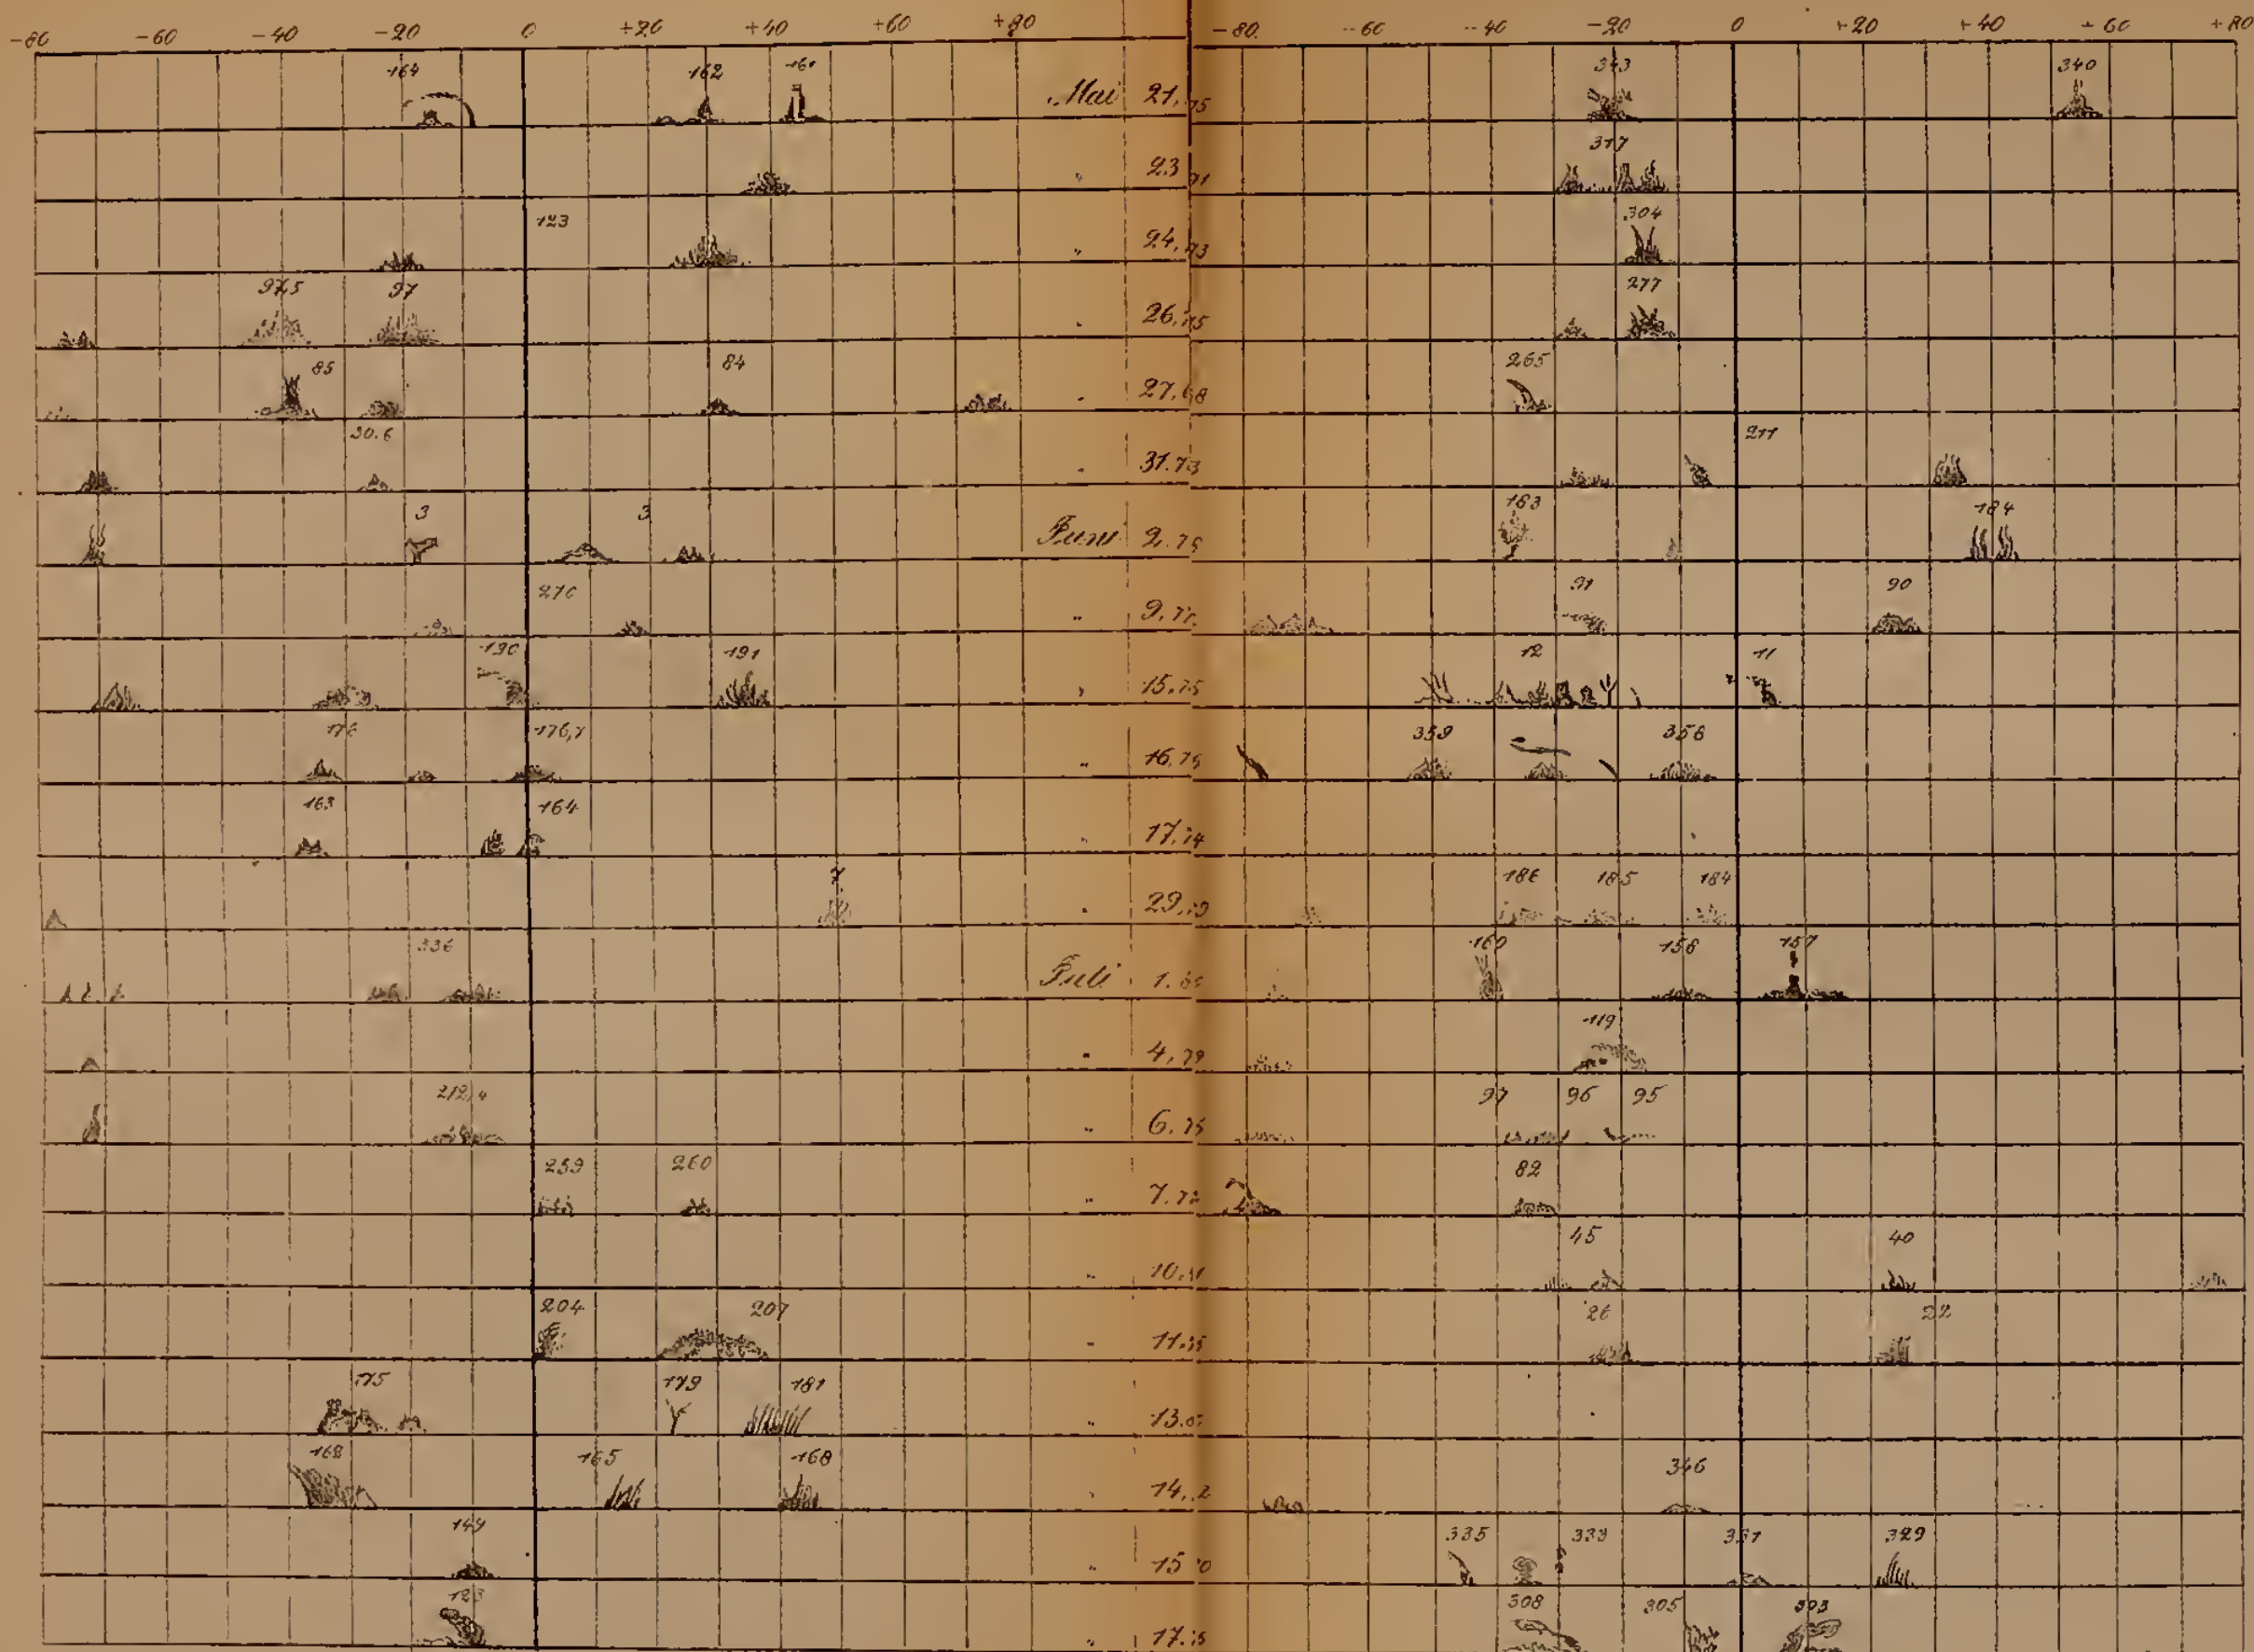 -80 -60 -40 -20 0 +20 +40 +60 +80 -80 -60 -40 -20 0 +20 +40 +60 +80
164 162 161 Mai 21,75 343 340
" 23 317
123 " 24, 304
97,5 97 " 26,75 277
85 84 " 27,68 265
30.6 " 31.73 211
3 3 Juni 2.75 163 184
270 " 9,7 91 90
190 191 " 15,75 12 11
176 176,7 " 16,75 359 358
163 164 " 17,74
7 " 29, 186 185 184
336 Juli 1. 160 158 157
" 4,79 119
212,4 " 6.75 97 96 95
259 260 " 7.72 82
" 10, 45 40
204 207 " 11. 26 22
175 179 181 " 13.
168 165 168 " 14. 346
149 " 15 335 333 331 329
123 " 17. 308 305 303